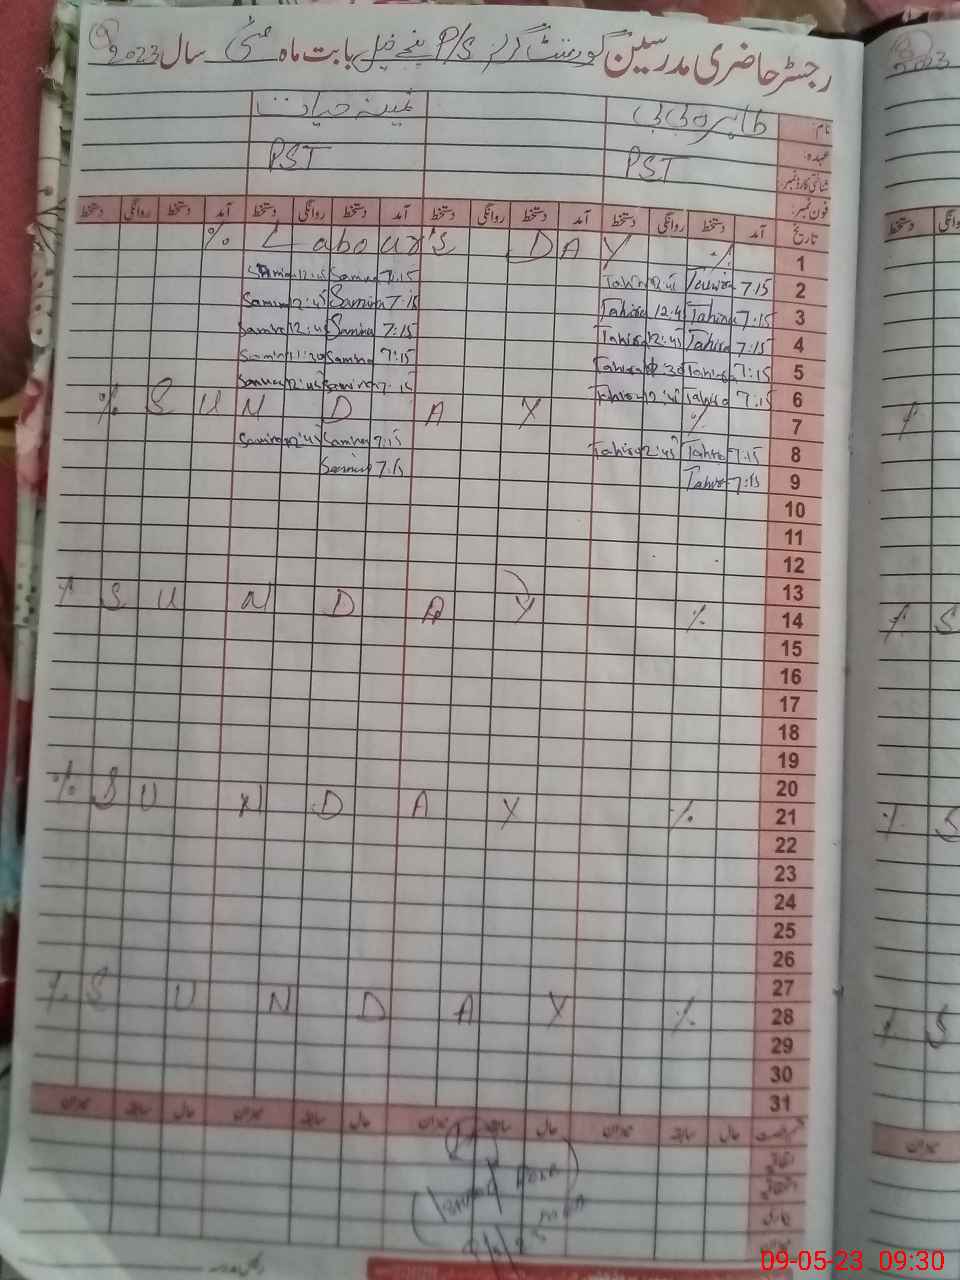 رجسٹر حاضری مدرسین گورنمنٹ گرلز P/S پنجے خیل بابت ماہ مئی سال 2023
نام: طاہرہ بی بی ثمینہ حیات
عہدہ: PST PST
شناختی کارڈ نمبر:
فون نمبر:
تاریخ آمد دستخط روانگی دستخط آمد دستخط روانگی دستخط آمد دستخط روانگی دستخط آمد دستخط روانگی دستخط
1 % Labour's DAY %
2 7:15 Tahira 12:45 Tahira 7:15 Samina 12:45 Samina
3 7:15 Tahira 12:45 Tahira 7:15 Samina 12:45 Samina
4 7:15 Tahira 12:45 Tahira 7:15 Samina 12:45 Samina
5 7:15 Tahira Tahira 7:15 Samina Samina
6 7:15 Tahira 12:45 Tahira 7:15 Samina 12:45 Samina
7 % S U N D A Y %
8 7:15 Tahira 12:45 Tahira 7:15 Samina 12:45 Samina
9 7:15 Tahira 7:15 Samina
10
11
12
13
14 % S U N D A Y %
15
16
17
18
19
20
21 % S U N D A Y %
22
23
24
25
26
27
28 % S U N D A Y %
29
30
31
حال سابقہ میزان حال سابقہ میزان حال سابقہ میزان حال سابقہ میزان
09-05-23 09:30